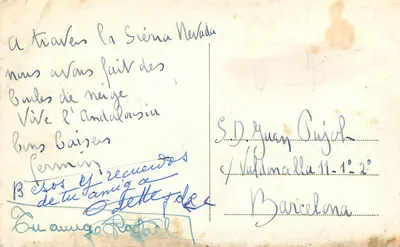 A travers la Siérra Nevada
nous avons fait des
boules de neige
Vive l'Andalousia
bons baisers
Germain
Besos y recuerdos
de tu amiga
Odette
Tu amigo
S. D. Juan Pujol
c/ Valdoncella 11-1º-2ª
Barcelona